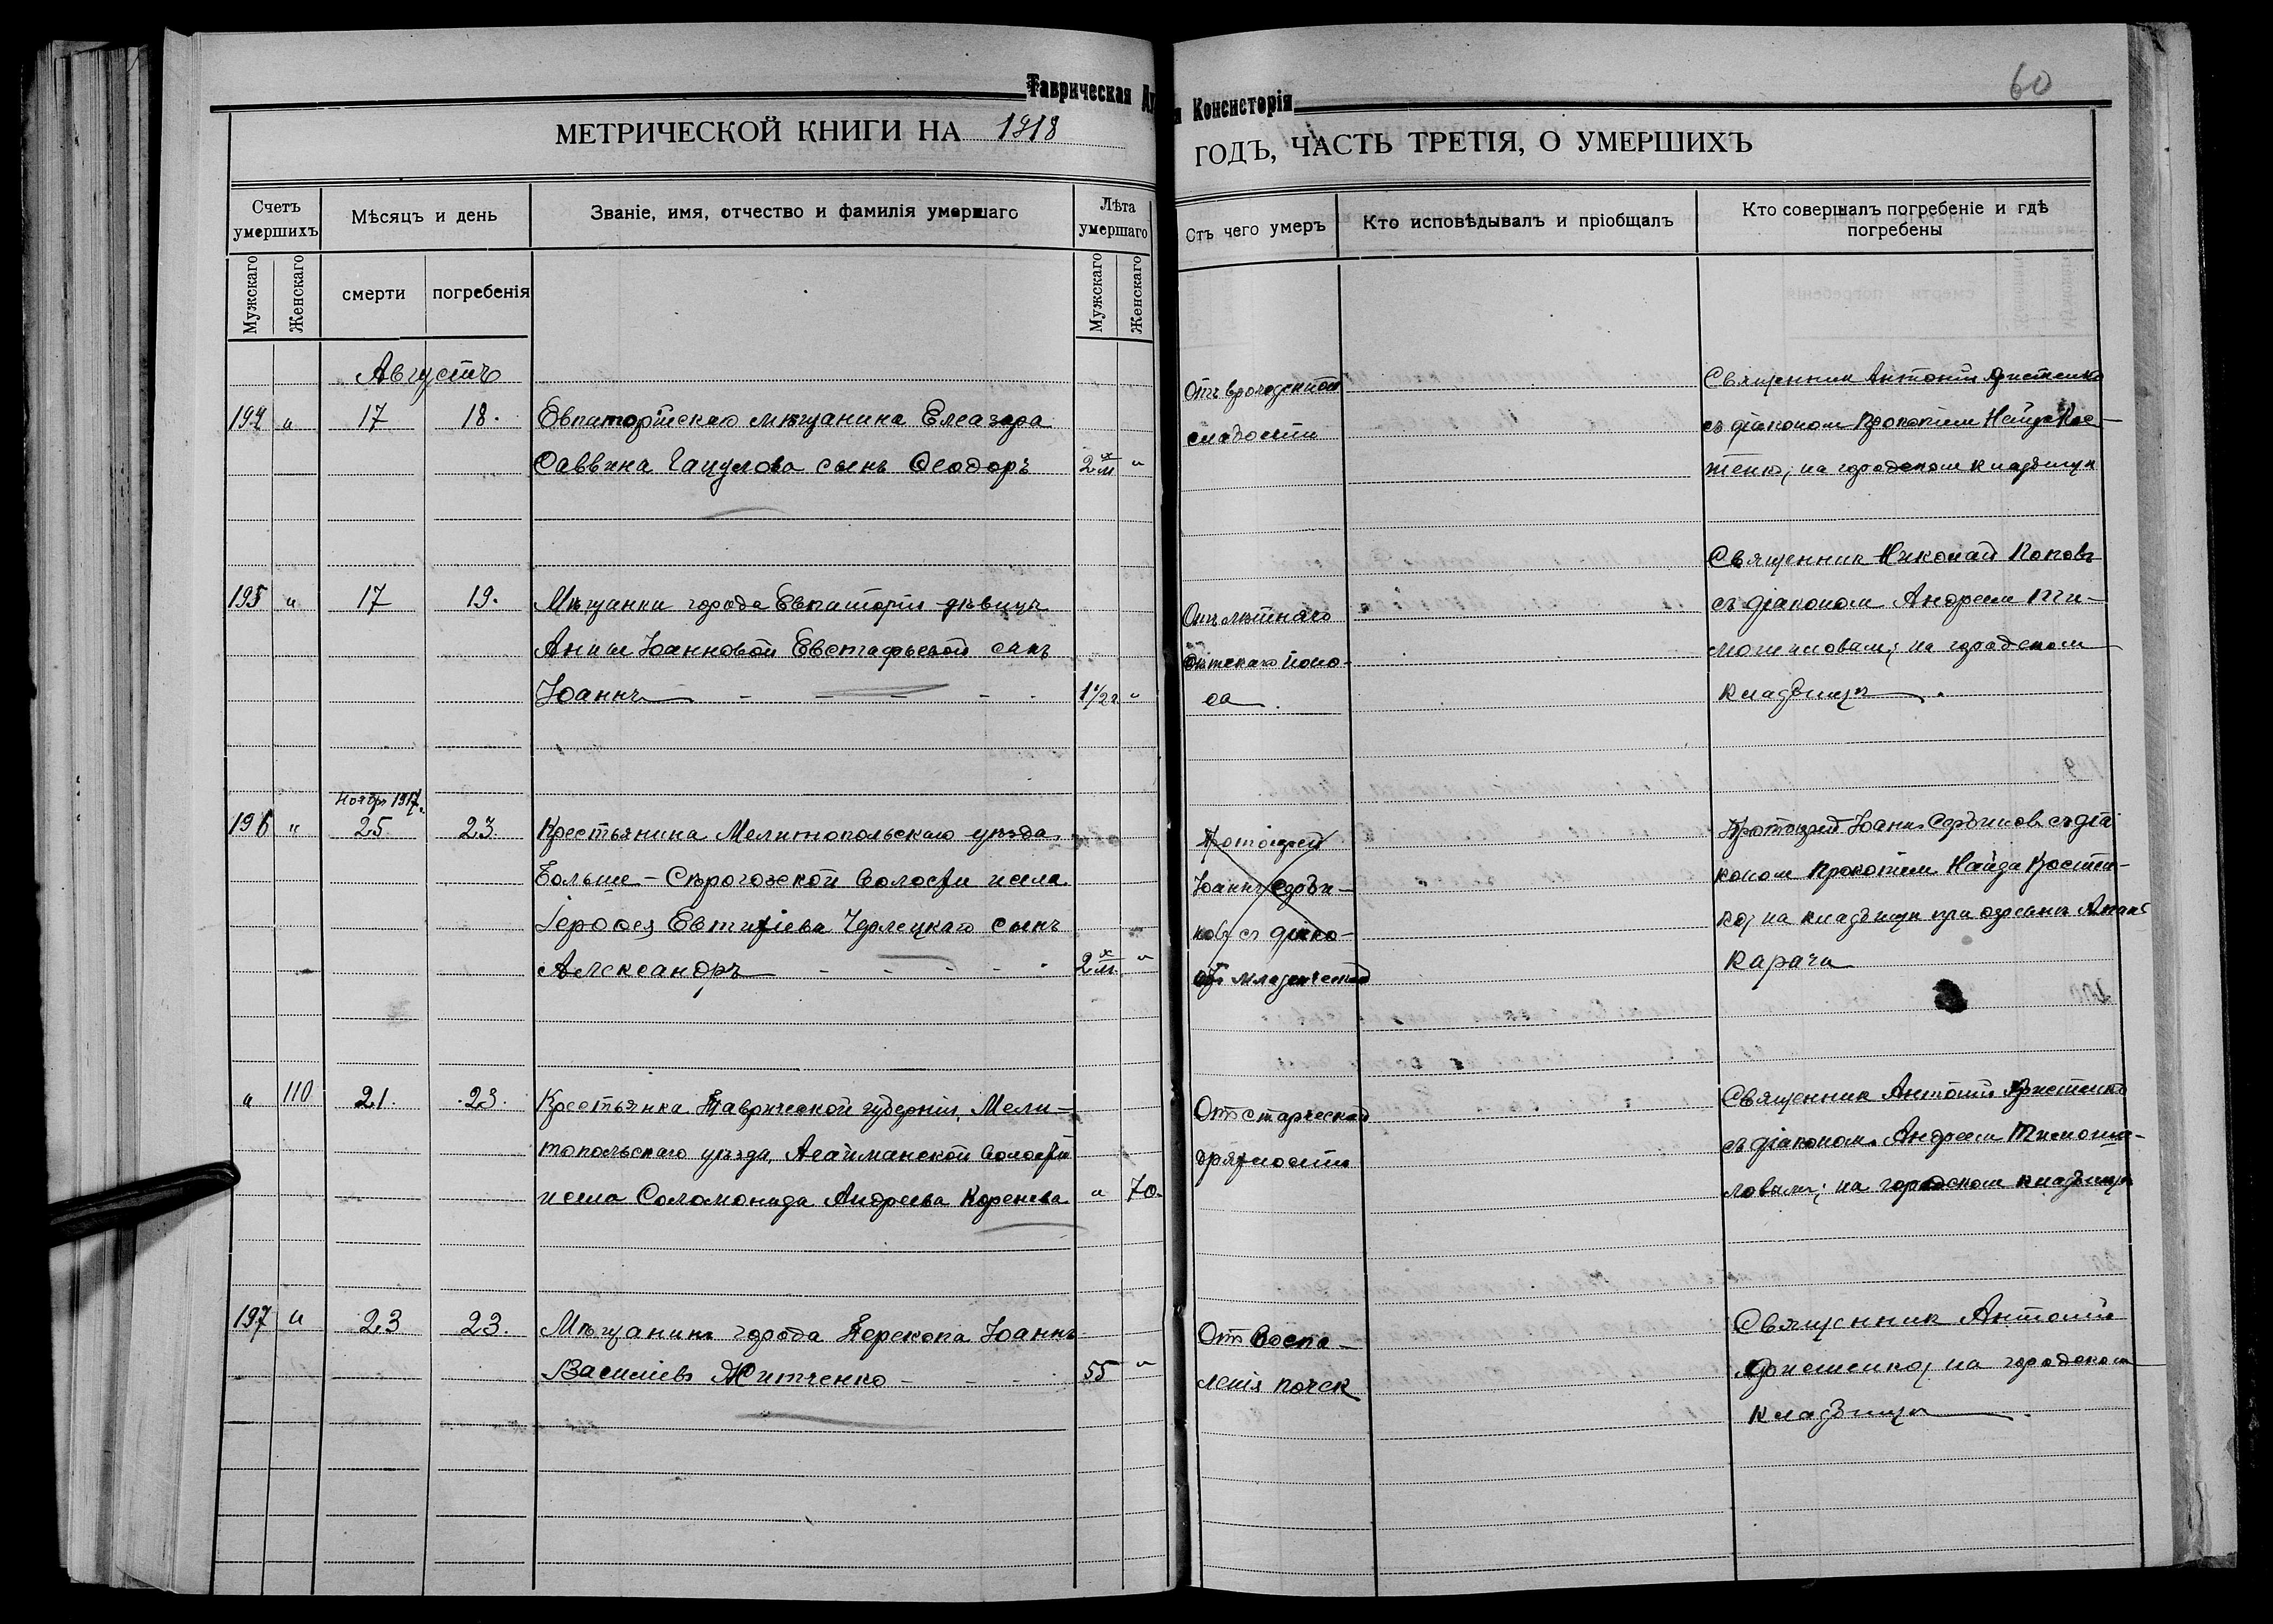 Таврическая
Консисторія
60
МЕТРИЧЕСКОЙ КНИГИ НА 1918
ГОДЪ, ЧАСТЬ ТРЕТІЯ, О УМЕРШИХЪ
Счетъ умершихъ
Мѣсяцъ и день
Званіе, имя, отчество и фамилія умершаго
Лѣта умершаго
Отъ чего умеръ
Кто исповѣдывалъ и пріобщалъ
Кто совершалъ погребеніе и гдѣ погребены
Мужскаго
Женскаго
смерти
погребенія
Мужскаго
Женскаго
Августъ
194 " 17 18.
Евпаторійскаго мѣщанина Елеазара
Саввина сынъ Ѳеодоръ 2 м "
Отъ врожденной
слабости
Священник Антоній
съ діаконом Прокопіем Найда Кос-
тенко; на городском кладбищѣ
195 " 17 19.
Мѣщанки города Евпаторіи дѣвицы
Анны Іоанновой Евстафьевой сынъ
Іоаннъ 1 1/2 г. "
Отъ лѣтняго
дѣтскаго поно-
са.
Священник Николай Попов
съ діаконом Андреем Ти-
мошиловым; на городском
кладбищѣ.
Ноябр. 1917 г.
196 " 25 23.
Крестьянина Мелитопольскаго уѣзда
Больше-Сѣрогозской волости и села
Іероѳея Евтихіева сынъ
Александръ 2 м "
Протоіерей
Іоаннъ Сербинов
с діако-
от младенческой
Протоіерей Іоанн Сербинов съ діа
коном Прокопіем Найда Костен-
ко; на кладбищѣ при деревнѣ
Карача
" 110 21. 23.
Крестьянка Таврической губерніи, Мели-
топольскаго уѣзда, Агайманской волости
и села Соломонида Андреева Коренева " 70.
От старческой
дряхлости
Священник Антоній
съ діаконом Андреем Тимоши-
ловым; на городском кладбищѣ
197 " 23 23.
Мѣщанинъ города Перекопа Іоаннъ
Василіевъ Житченко 55 "
От воспа-
ленія почек
Священник Антоній
на городском
кладбищѣ.